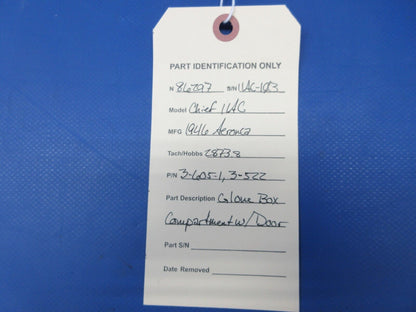 PART IDENTIFICATION ONLY
N 86297 S/N 11AC-1013
Model Chief 11AC
MFG 1946 Aeronca
Tach/Hobbs 2873.8
P/N 3-605-1, 3-522
Part Description Glove Box
Compartment w/ Door
Part S/N
Date Removed